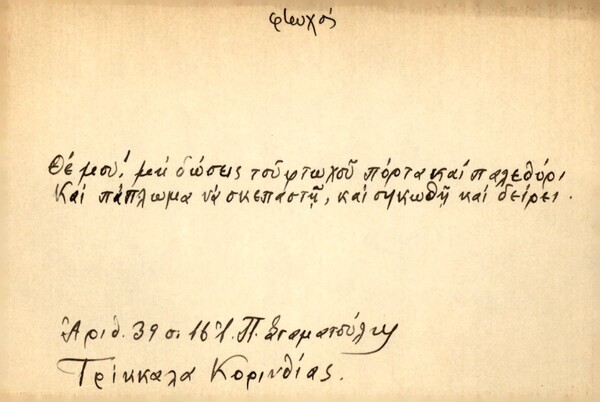 φτωχός
Θέ μου! μή δώσεις τοῦ φτωχοῦ πόρτα καί παλεθύρι
Καί πάπλωμα νά σκεπαστῇ, καί σηκωθῇ καί δείρει.
Ἀριθ. 39 σ. 16 Π. Σταματούλη
Τρίκκαλα Κορινθίας.